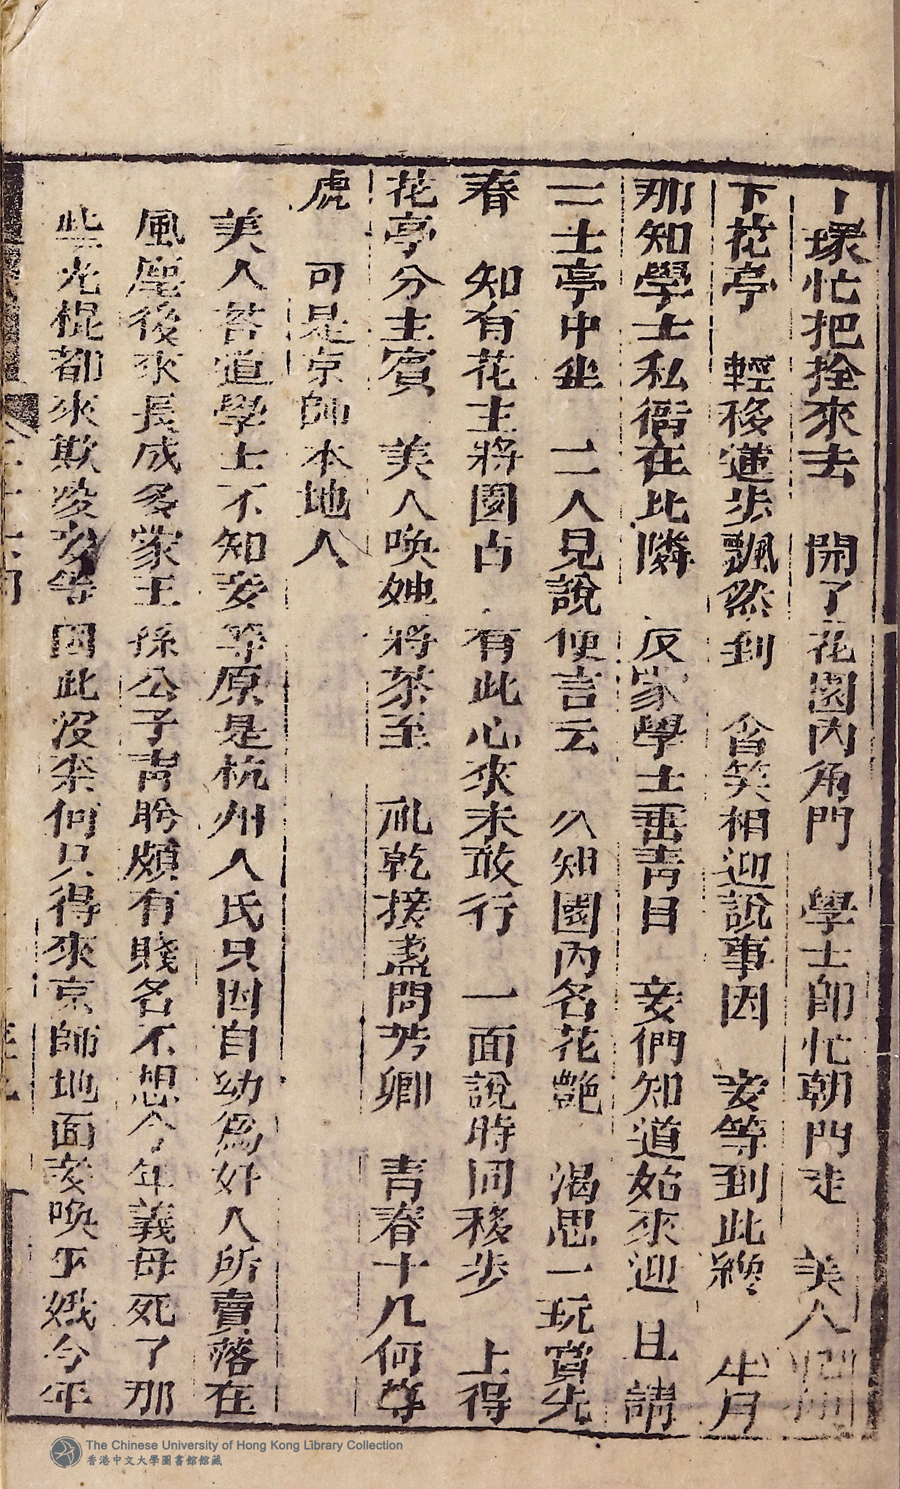 丫環忙把拴來去　開了花園內角門　學士即忙朝門走　美人
下花亭　輕移蓮步飄然到　含笑相迎說事因　妾等到此纔半月
那知學士私衙在比隣　反蒙學士垂青目　妾們知道始來迎　且請
二士亭中坐　二人見說便言云　久知園內名花艷　渴思一玩賞先
春　知有花主將園占　有此心來未敢行　一面說時同移步　上得
花亭分主賓　美人喚婢將茶至　礼乾接盞問芳卿　青春十几何等
處　可是京師本地人
美人荅道學士不知妾等原是杭州人氏只因自幼為奸人所賣落在
風塵後來長成多蒙王孫公子青盻頗有賤名不想今年義母死了那
些光棍都來欺凌妾等因此沒奈何只得來京師地面妾喚玉娥今年
The Chinese University of Hong Kong Library Collection
香港中文大學圖書館館藏